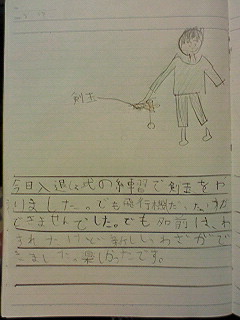 剣玉
今日入退 式の練習で剣玉をや
りました。でも飛行機
できませんでした。でも名前は、わ
すれたけど新しいわざがで
きました。楽しかったです。